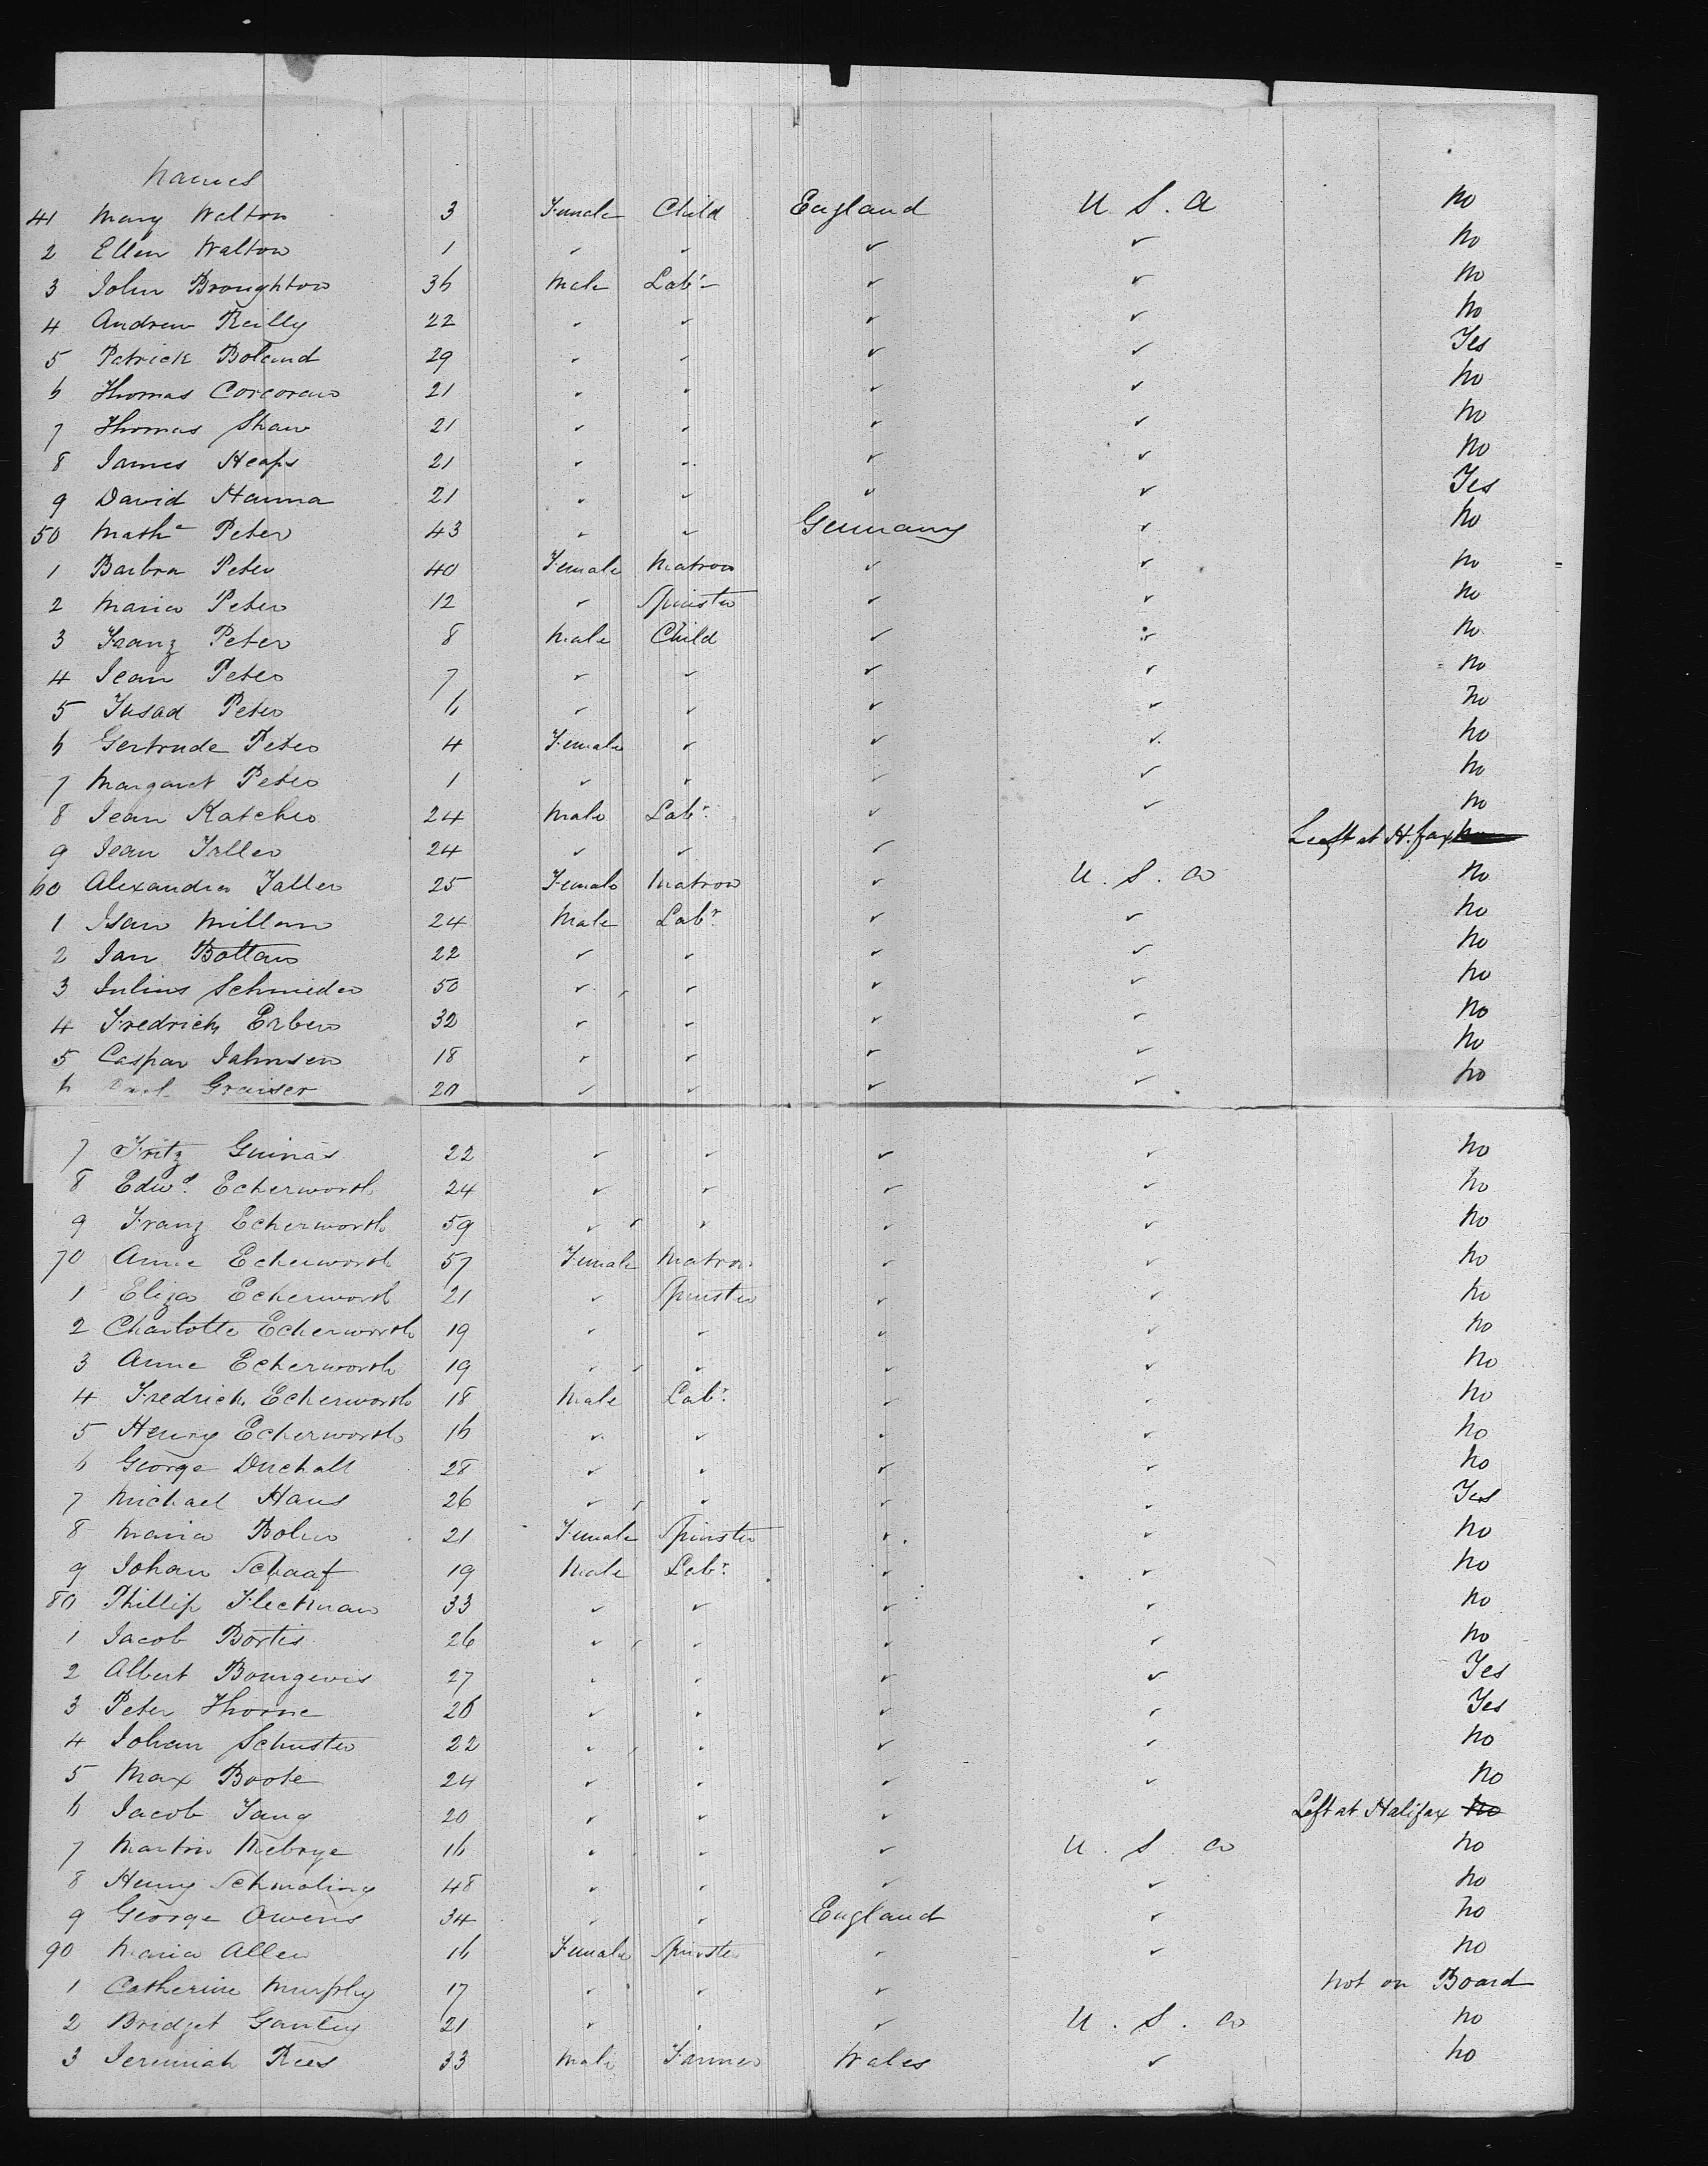 Names
41 Mary Walton 3 Female Child England U. S. A No
2 Ellen Walton 1 ✓ ✓ ✓ ✓ No
3 John Broughton 36 Male Labr ✓ ✓ No
4 Andrew Reilly 22 ✓ ✓ ✓ ✓ No
5 Patrick Boland 29 ✓ ✓ ✓ ✓ Yes
6 Thomas Corcoran 21 ✓ ✓ ✓ ✓ No
7 Thomas Shaw 21 ✓ ✓ ✓ ✓ No
8 James Heaps 21 ✓ ✓ ✓ ✓ No
9 David Hanna 21 ✓ ✓ ✓ ✓ Yes
50 Math Peter 43 ✓ ✓ Germany ✓ No
1 Barbra Peter 40 Female Matron ✓ ✓ No
2 Maria Peter 12 ✓ Spinster ✓ ✓ No
3 Franz Peter 8 Male Child ✓ ✓ No
4 Jean Peter 7 ✓ ✓ ✓ ✓ No
5 Peter 6 ✓ ✓ ✓ ✓ No
6 Gertrude Peter 4 Female ✓ ✓ ✓ No
7 Margaret Peter 1 ✓ ✓ ✓ ✓ No
8 Jean Katcher 24 Male Labr ✓ ✓ No
9 Jean Faller 24 ✓ ✓ ✓ Left at H.fax No
60 Alexandra Faller 25 Female Matron ✓ U. S. A No
1 Millan 24 Male Labr ✓ ✓ No
2 Jan Bottan 22 ✓ ✓ ✓ ✓ No
3 Julius Schmieder 50 ✓ ✓ ✓ ✓ No
4 Fredrich Erben 32 ✓ ✓ ✓ ✓ No
5 Caspar Jahnsen 18 ✓ ✓ ✓ ✓ No
6 Graiser 20 ✓ ✓ ✓ ✓ No
7 Fritz Guinas 22 ✓ ✓ ✓ ✓ No
8 Edwd. Echerworth 24 ✓ ✓ ✓ ✓ No
9 Franz Echerworth 59 ✓ ✓ ✓ ✓ No
70 Anne Echerworth 57 Female Matron ✓ ✓ No
1 Eliza Echerworth 21 ✓ Spinster ✓ ✓ No
2 Charlotte Echerworth 19 ✓ ✓ ✓ ✓ No
3 Anne Echerworth 19 ✓ ✓ ✓ ✓ No
4 Fredrich Echerworth 18 Male Labr ✓ ✓ No
5 Henry Echerworth 16 ✓ ✓ ✓ ✓ No
6 George Duchall 28 ✓ ✓ ✓ ✓ No
7 Michael Haus 26 ✓ ✓ ✓ ✓ Yes
8 Maria Bolen 21 Female Spinster ✓ ✓ No
9 Johan Schaaf 19 Male Labr ✓ ✓ No
80 Phillip Fleckman 33 ✓ ✓ ✓ ✓ No
1 Jacob Bortis 26 ✓ ✓ ✓ ✓ No
2 Albert Bourgeois 27 ✓ ✓ ✓ ✓ Yes
3 Peter Thorne 26 ✓ ✓ ✓ ✓ Yes
4 Johan Schuster 22 ✓ ✓ ✓ ✓ No
5 Max Boote 24 ✓ ✓ ✓ ✓ No
6 Jacob 20 ✓ ✓ ✓ Left at Halifax No
7 Martin 16 ✓ ✓ ✓ U. S. A No
8 Henry Schmoling 48 ✓ ✓ ✓ ✓ No
9 George Owens 34 ✓ ✓ England ✓ No
90 Maria Allen 16 Female Spinster ✓ ✓ No
1 Catherine Murphy 17 ✓ ✓ ✓ Not on Board
2 Bridget Ganley 21 ✓ ✓ ✓ U. S. A No
3 Jeremiah Rees 33 Male Farmer Wales ✓ No